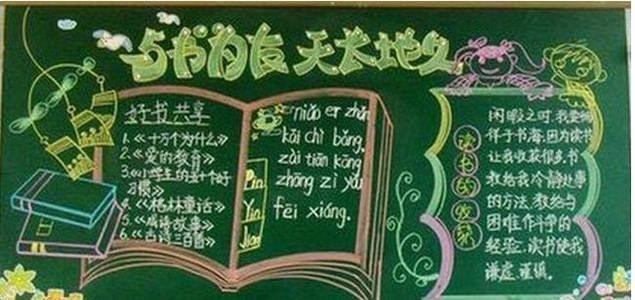 与书为友 天长地久
好书共享
1.《十万个为什么》
2.《爱的教育》
3.《小学生的五十个好
习惯》
4.《格林童话》
5.《成语故事》
6.《古诗三百首》
niǎo er zhǎn
kāi chì bǎng,
zài tiān kōng
zhōng zì yóu
fēi xiáng.
Pin
Yin
读书的收获
闲暇之时,我爱徜
徉于书海,因为读书
让我收获很多.书
教给我冷静处事
的方法,教给与
困难作斗争的
经验.读书使我
谦虚、谨慎.